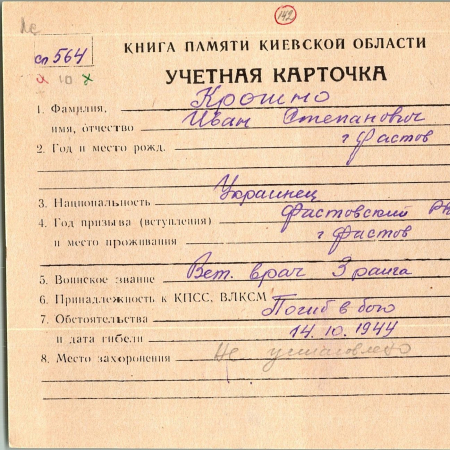 142
сп 564
ю х
КНИГА ПАМЯТИ КИЕВСКОЙ ОБЛАСТИ
УЧЕТНАЯ КАРТОЧКА
1. Фамилия, Крошно
имя, отчество Иван Степанович
2. Год и место рожд. г Фастов
3. Национальность Украинец
4. Год призыва (вступления) Фастовский РК
и место проживания г Фастов
5. Воинское звание Вет. врач 3 ранга
6. Принадлежность к КПСС, ВЛКСМ
7. Обстоятельства Погиб в бою
и дата гибели 14.10.1944
8. Место захоронения Не установлено